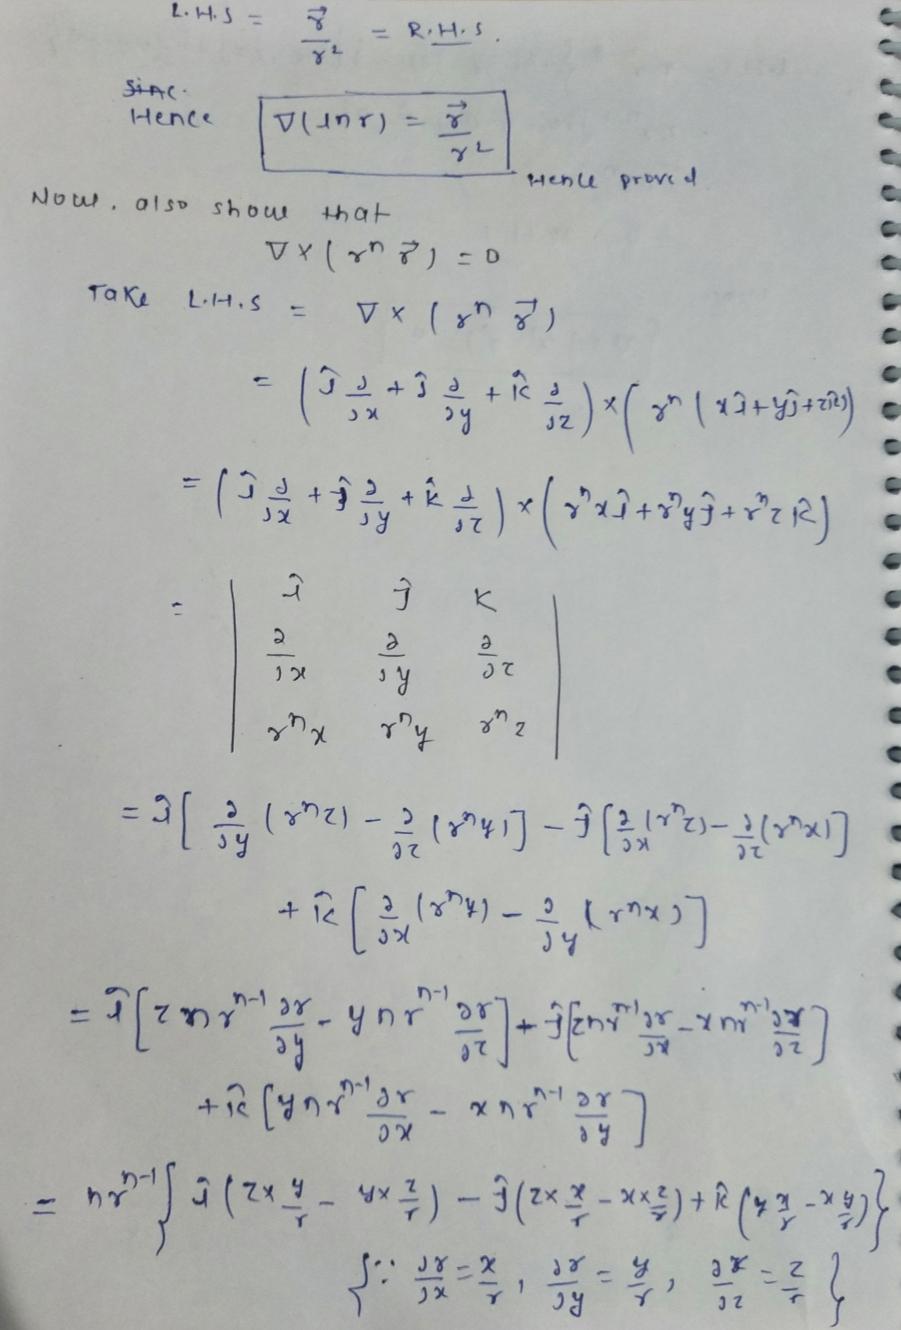 L.H.S = \frac{\vec{r}}{r^2} = R.H.S.
Hence ∇(lnr) = \frac{\vec{r}}{r^2}
Hence proved
Now, also show that
∇×(r^n \vec{r}) = 0
Take L.H.S = ∇×(r^n \vec{r})
= (î ∂/∂x + ĵ ∂/∂y + k̂ ∂/∂z) × (r^n (xî+yĵ+zk̂))
= (î ∂/∂x + ĵ ∂/∂y + k̂ ∂/∂z) × (r^n xî + r^n yĵ + r^n z k̂)
= | î ĵ K
∂/∂x ∂/∂y ∂/∂z
r^n x r^n y r^n z |
= î[ ∂/∂y (r^n z) - ∂/∂z (r^n y)] - ĵ[∂/∂x (r^n z) - ∂/∂z (r^n x)]
+ k̂ [ ∂/∂x (r^n y) - ∂/∂y (r^n x)]
= î[z n r^{n-1} ∂r/∂y - y n r^{n-1} ∂r/∂z] + ĵ[z n r^{n-1} ∂r/∂x - x n r^{n-1} ∂r/∂z]
+ k̂ [y n r^{n-1} ∂r/∂x - x n r^{n-1} ∂r/∂y]
= n r^{n-1} { î (z× y/r - y× z/r) - ĵ (z× x/r - x× z/r) + k̂ (y x/r - x y/r) }
{ ∵ ∂r/∂x = x/r , ∂r/∂y = y/r , ∂r/∂z = z/r }